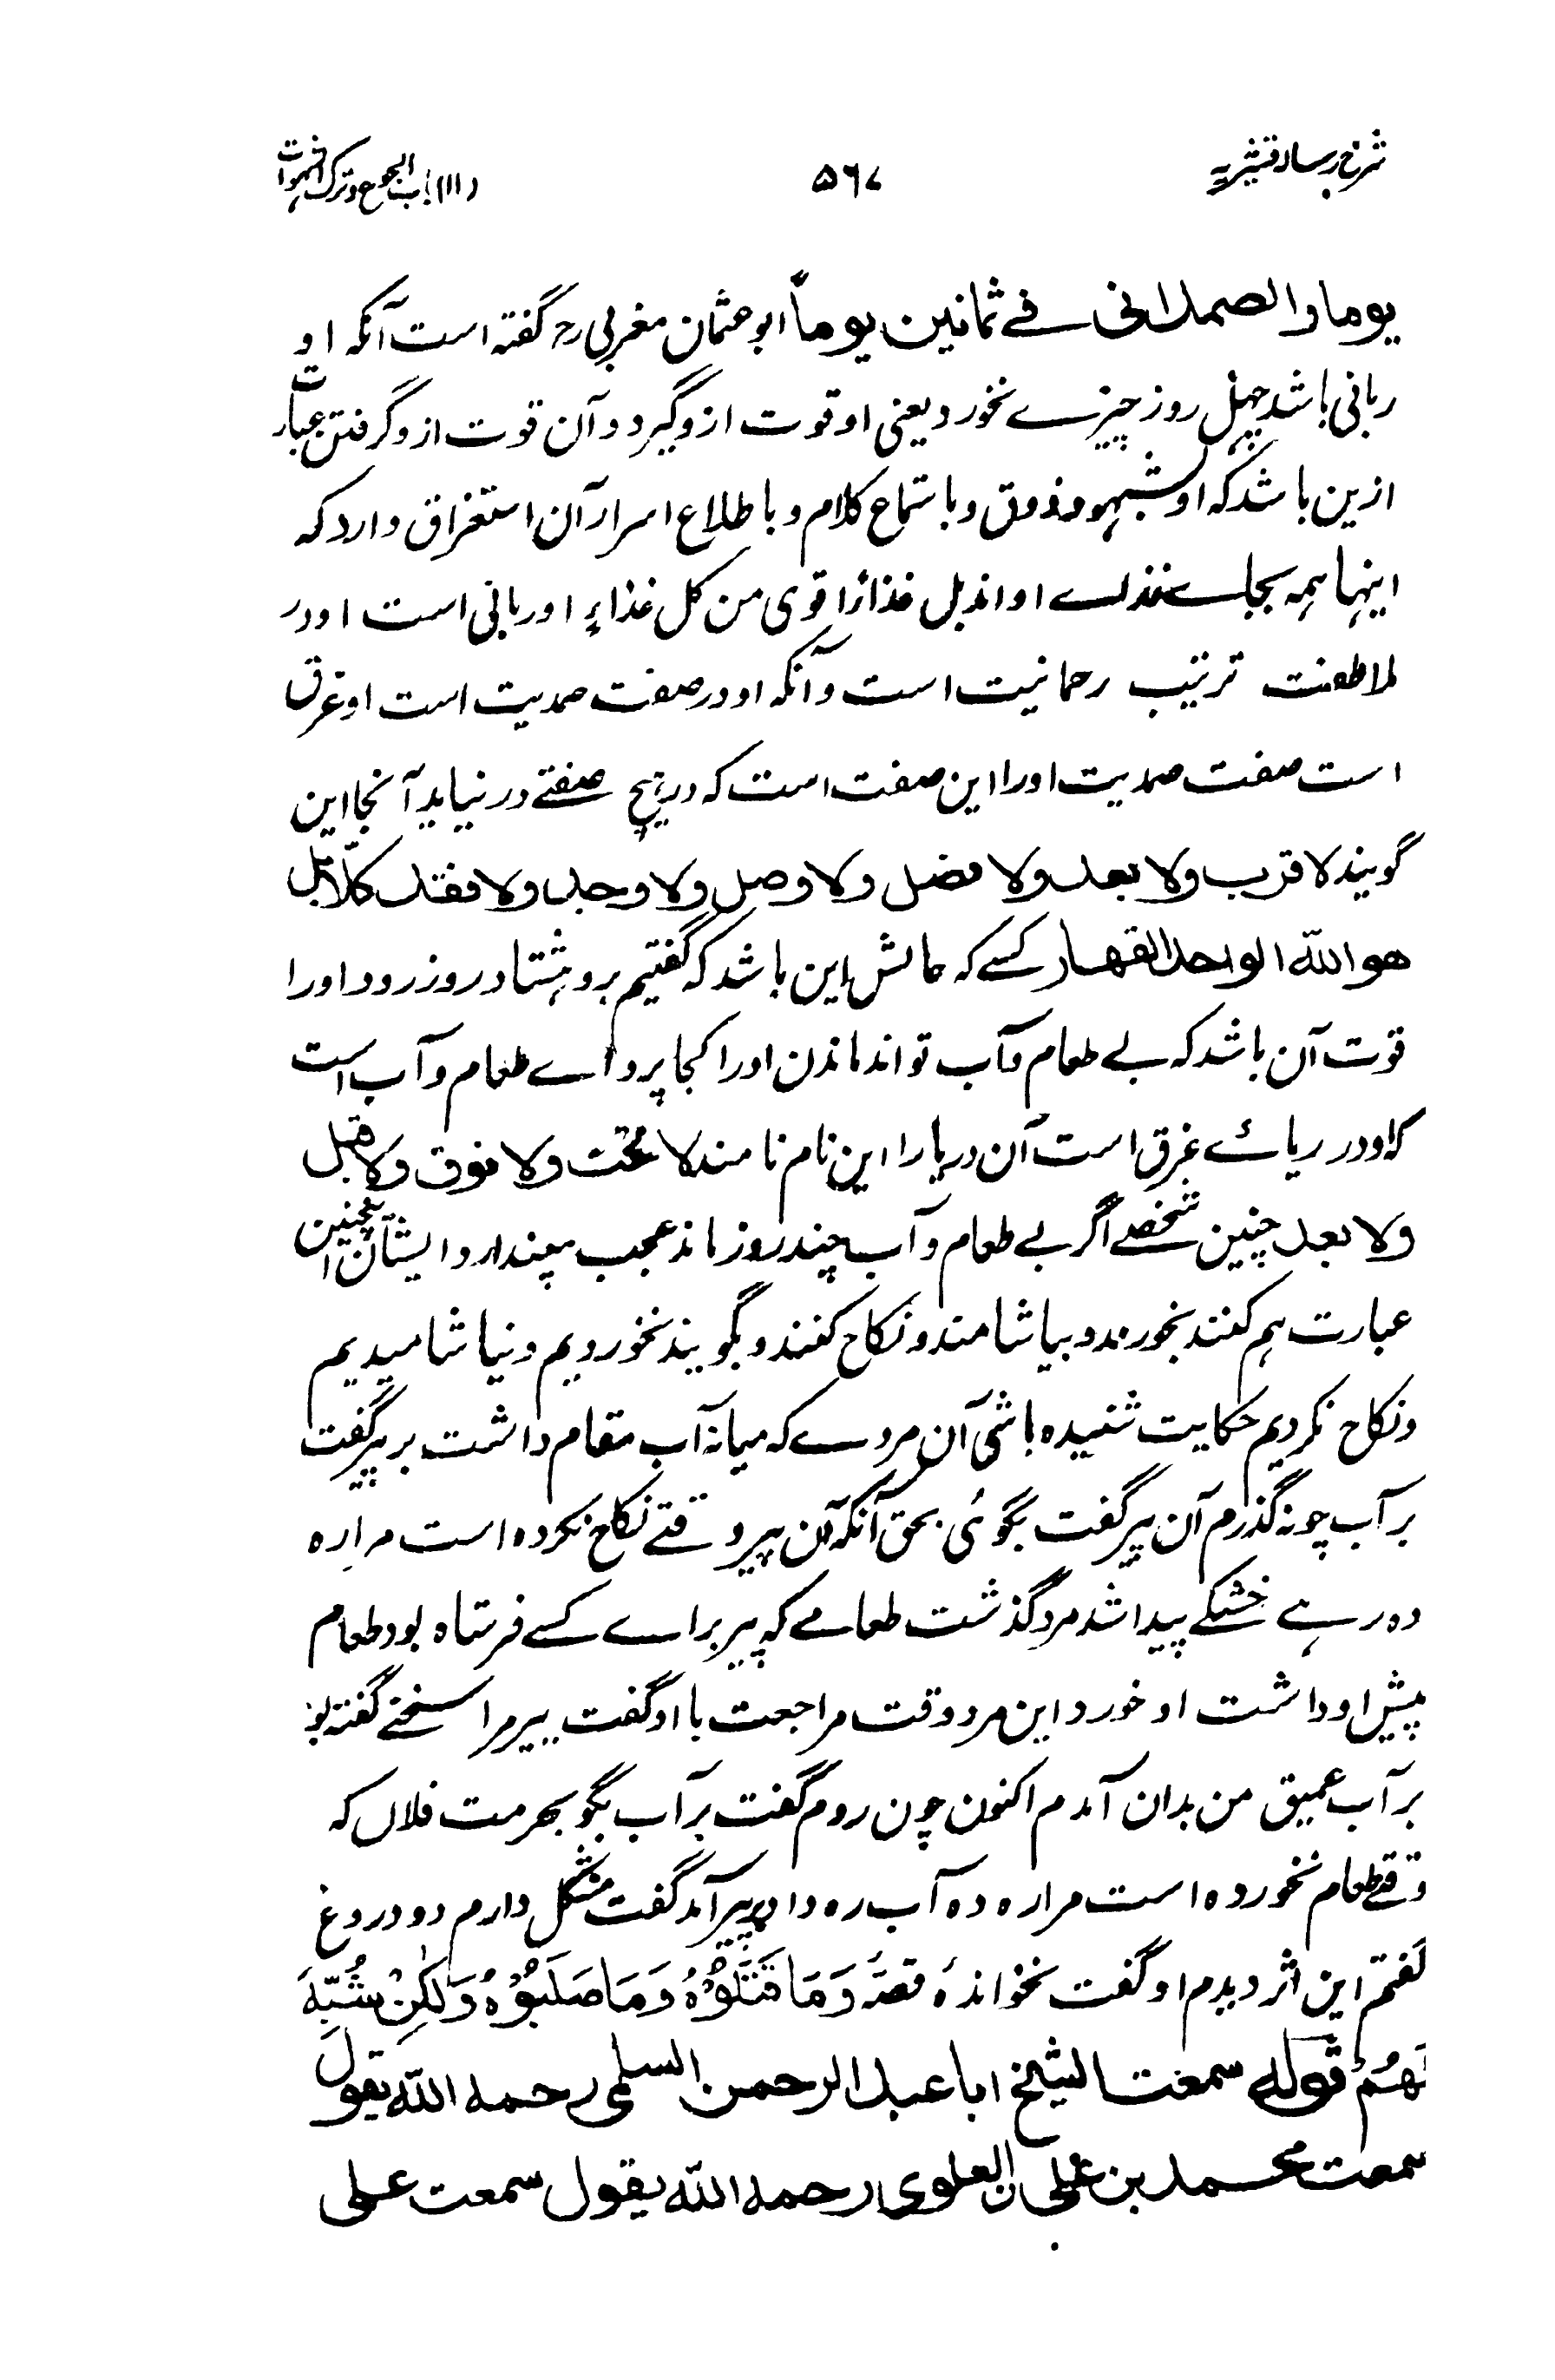 شرح رسالہ قشیریہ
۵۶۷
(۱۱) باب الجوع و ترک الشہوات
یوما والصمدانی فے ثمانین یوماً ابو عثمان مغربی رح گفتہ است آنکہ او
ربانی باشد چہل روز چیزے نخورد یعنی او قوت ازو گیرد و آن قوت ازو گرفتن عبارت
ازین باشد کہ او شہود و ذوق و باستماع کلام و باطلاع اسرار آن استغراق دارد کہ
اینہا ہمہ بجاے غذاے او اند بل غذاءً اقوی من کل غذاءٍ او ربانی است او در
ملاطفت تربیت رحمانیت است و آنکہ او در صفت صمدیت است او غرق
است صفت صمدیت او را این صفت است کہ در ہیچ صفتے در نیاید آنجا این
گویند لا قرب ولا بعد ولا فصل ولا وصل ولا وجد ولا فقد کلا بل
هو اللہ الواحد القهار کسے کہ حالش این باشد کہ گفتیم برو ہشتاد روز رود او را
قوت آن باشد کہ بے طعام و آب تواند ماندن او را کجا پرواے طعام و آب است
کہ او در دریائے غرق است آن دریا را این نام نامند لا تحت ولا فوق ولا قبل
ولا بعد چنین شخصے اگر بے طعام و آب چند روز ماند عجب مپندار و ایشان اینچنین
عبارت ہم کنند بخورند و بیاشامند و نکاح کنند و بگویند نخوردیم و نیاشامیدیم
و نکاح نکردیم حکایت شنیدہ باشی آن مردے کہ میانۂ آب مقام داشت بر پیر گفت
بر آب چونہ گذرم آن پیر گفت بگوئی بحق آنکہ آن پیر وقتے نکاح نکردہ است مرا رہ
دہ رہے خشکے پیدا شد مرد گذشت طعامے کہ پیر براے کسے فرستادہ بود طعام
پیش او داشت او خورد این مرد وقت مراجعت با او گفت پیر مرا سخنے گفتہ بود
بر آب عمیق من بدان آمدم اکنون چون روم گفت بر آب بگو بحرمت فلاں کہ
وقتے طعام نخوردہ است مرا رہ دہ آب رہ داد بر پیر آمد گفت مشکل دارم دو دروغ
گفتم این اثر دیدم او گفت نخواندۂ قصۂ وَمَا قَتَلُوْهُ وَمَا صَلَبُوْهُ وَلٰكِنْ شُبِّهَ
لَهُمْ قوله سمعت الشیخ ابا عبد الرحمن السلمی رحمه اللہ یقول
سمعت محمد بن علی العلوی رحمه اللہ یقول سمعت علی